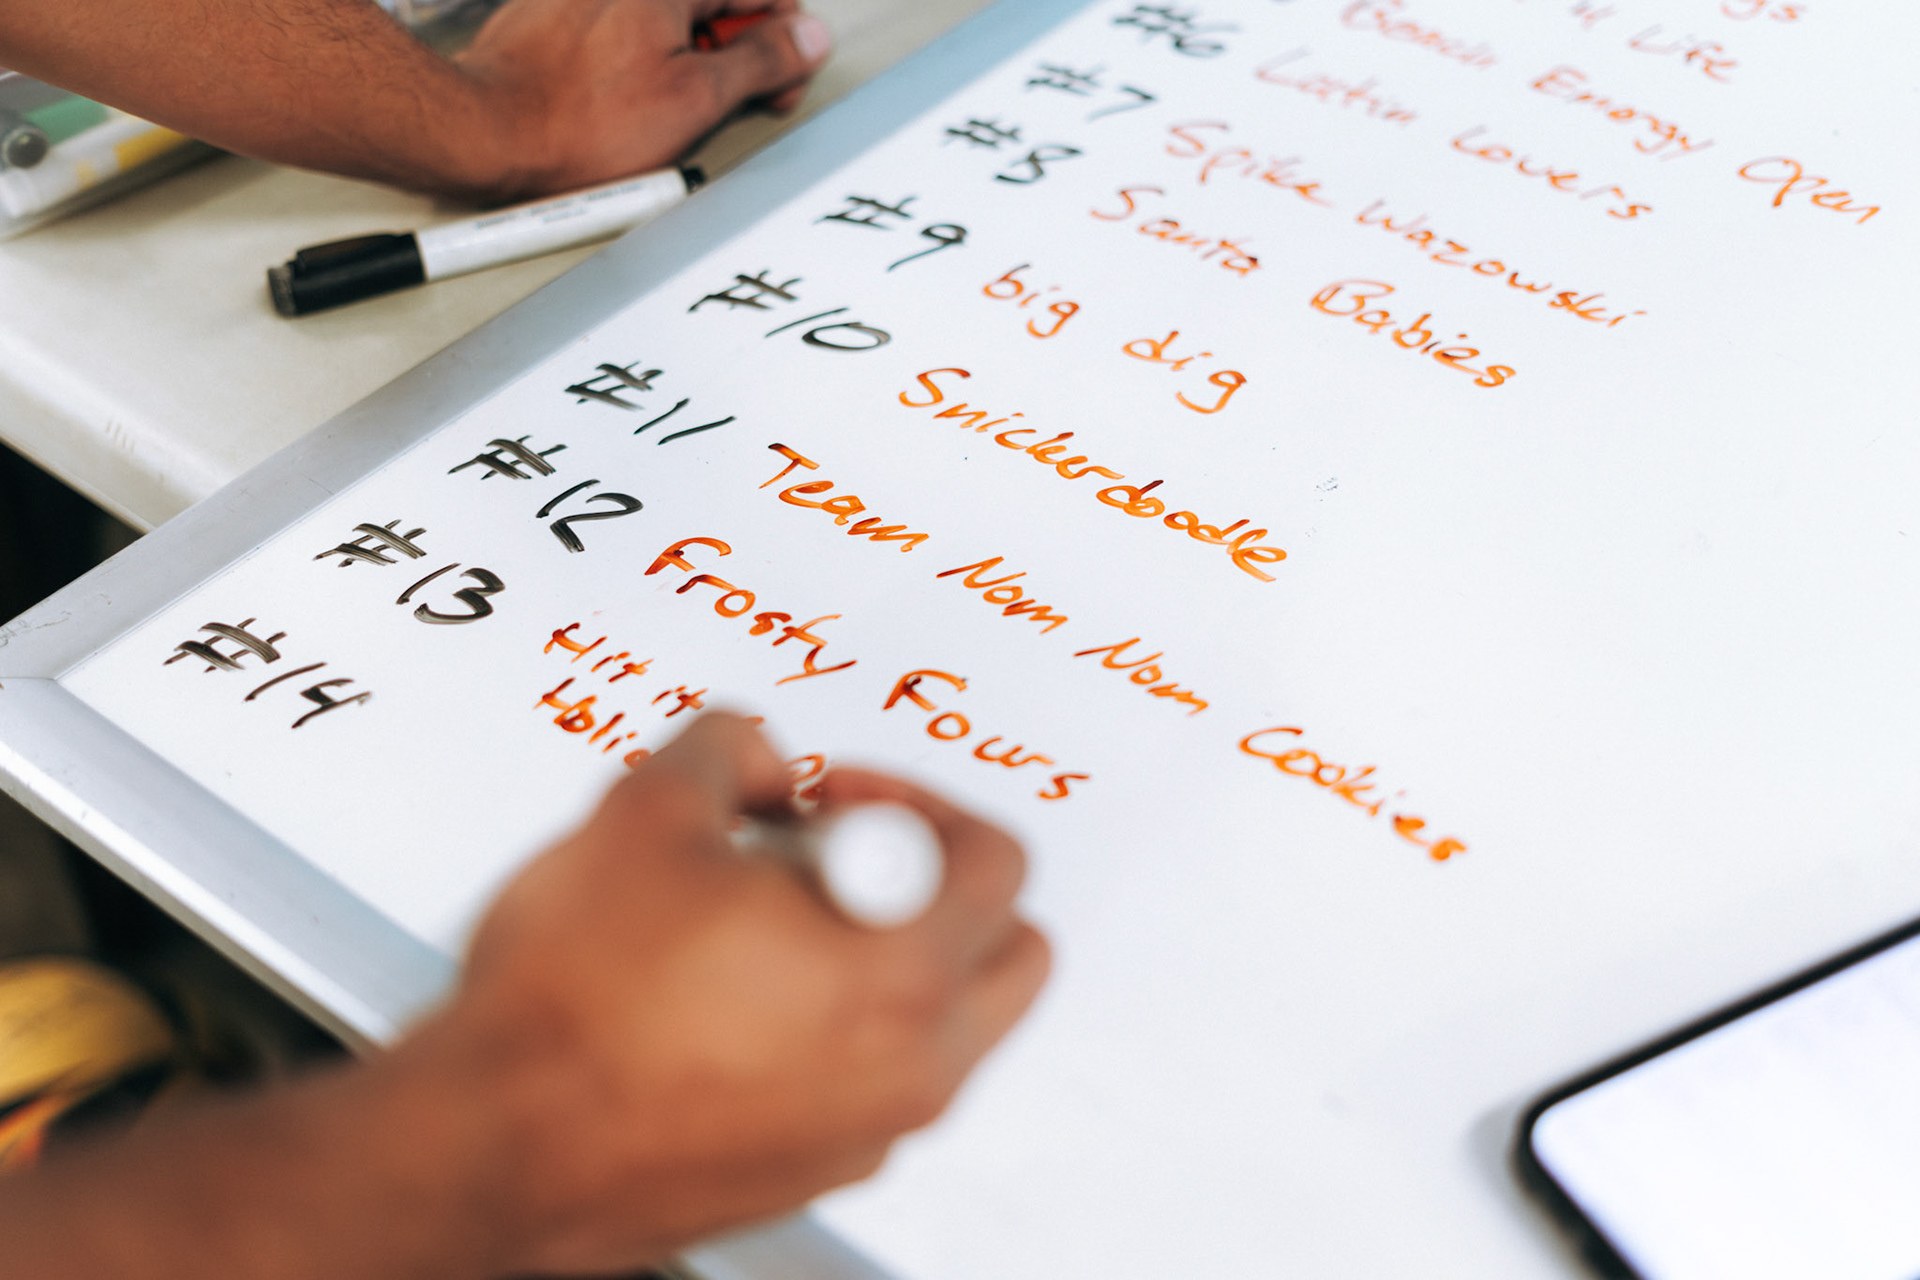 Life
Beach Energy Open
#6 Latin Lovers
#7 Spike Wazowski
#8 Santa Babies
#9 big dig
#10 Snickerdoodle
#11 Team Nom Nom Cookies
#12 Frosty Fours
#13 Hit it
#14